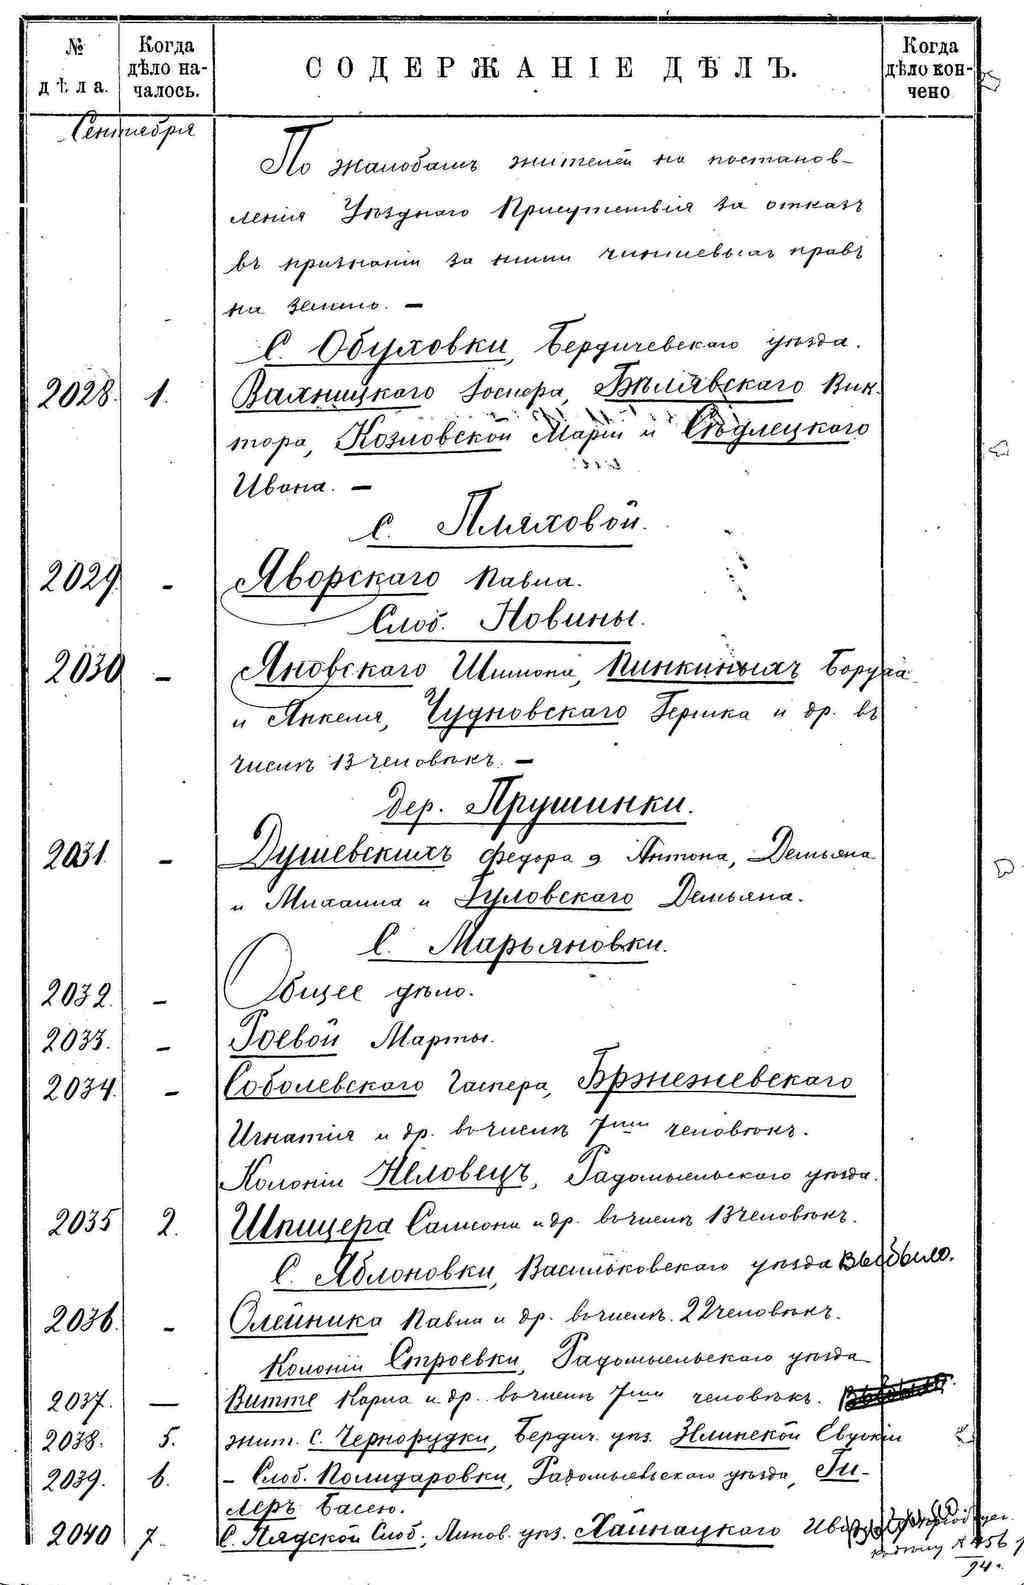 № дѣла.
Когда дѣло на-
чалось.
СОДЕРЖАНІЕ ДѢЛЪ.
Когда дѣло кон-
чено
Сентября
По жалобамъ жителей на постанов-
ленія Уѣзднаго Присутствія за отказъ
въ признаніи за ними чиншевыхъ правъ
на землю. —
С. Обуховки, Бердичевскаго уѣзда.
2028. 1. Вахницкаго Іосифа, Бѣлявскаго Вик-
тора, Козловской Маріи и Сѣдлецкаго
Ивана. —
С. Пляховой.
2029 - Яворскаго Павла.
Слоб. Новины.
2030 - Яновскаго Шимона, Пинкиныхъ Боруха
и Анкеля, Чудновскаго Гершка и др. въ
числѣ 13 человѣкъ. —
дер. Прушинки.
2031. - Душевскихъ Федора, Антона, Демьяна
и Михаила и Гуловскаго Демьяна.
С. Марьяновки.
2032. - Общее дѣло.
2033. - Роевой Марты.
2034. - Соболевскаго Гаспера, Бржежевскаго
Игнатія и др. въ числѣ 7ми человѣкъ.
Колоніи Нѣловецъ, Радомысльскаго уѣзда.
2035 2. Шпицера Самсона и др. въ числѣ 13 человѣкъ.
С. Яблоновки, Васильковскаго уѣзда Выбыло.
2036. - Олейника Павла и др. въ числѣ 22 человѣкъ.
Колоніи Строевки, Радомысльскаго уѣзда
2037. — Витте Карла и др. въ числѣ 7ми человѣкъ.
2038. 5. жит. С. Чернорудки, Бердич. уѣз. Илинской Евдокіи
2039. 6. - Слоб. Полидаровки, Радомысльскаго уѣзда, Ги-
леръ Басею.
2040 7. С. Лядской Слоб., Липов. уѣз. Хайнацкаго
94 г.